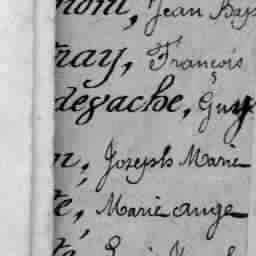 mont, Jean Bap
ray, François
degache, Guy
n, Joseph Marie
té, Marie ange